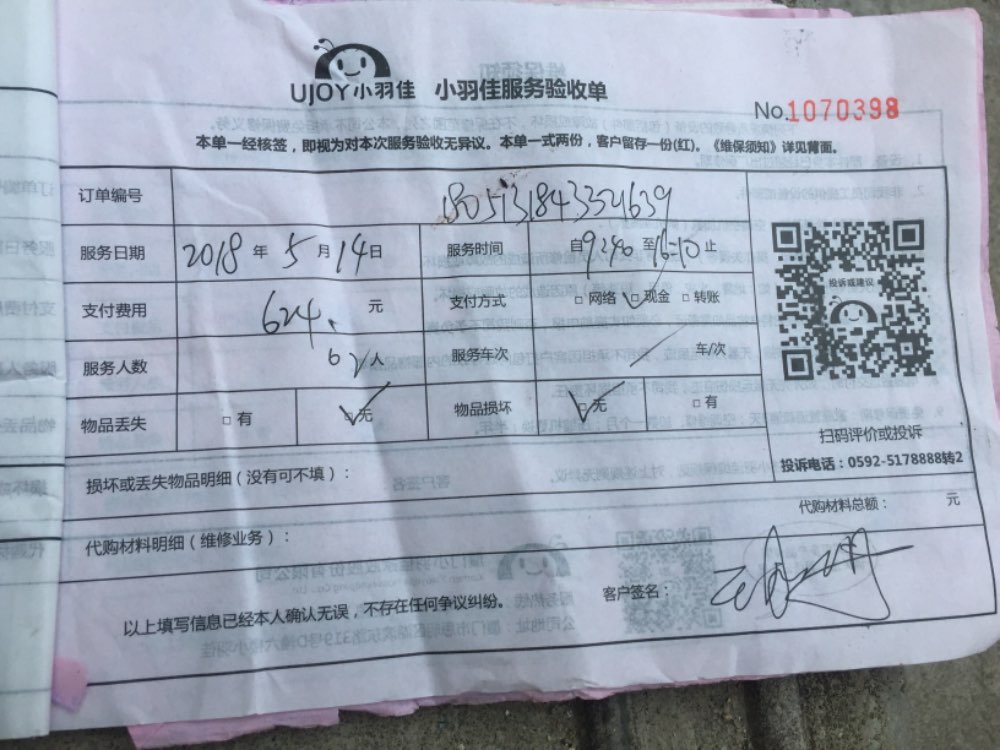 UJOY小羽佳 小羽佳服务验收单
No.1070398
本单一经核签，即视为对本次服务验收无异议。本单一式两份，客户留存一份(红)。《维保须知》详见背面。
订单编号 1805131843321639
服务日期 2018年5月14日 服务时间 自9:40至16:10止
支付费用 624. 元 支付方式 □网络 □现金 □转账
投诉或建议
服务人数 人 服务车次 车/次
物品丢失 □有 □无 物品损坏 □无 □有
扫码评价或投诉
投诉电话：0592-5178888转2
损坏或丢失物品明细（没有可不填）：
代购材料总额： 元
代购材料明细（维修业务）：
客户签名：
以上填写信息已经本人确认无误，不存在任何争议纠纷。